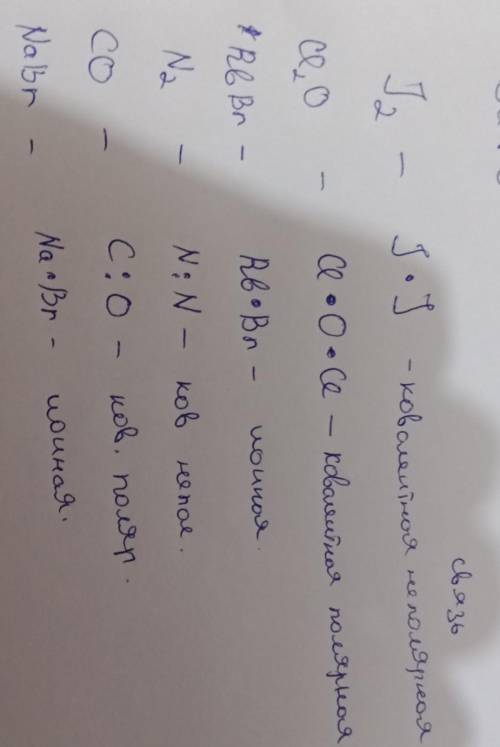 связь
J2 - J • J - ковалентная неполярная
Cl2O - Cl • O • Cl - ковалентная полярная
*RbBr - Rb • Br - ионная.
N2 - N : N - ков непол.
CO - C : O - ков. поляр.
NaBr - Na • Br - ионная.